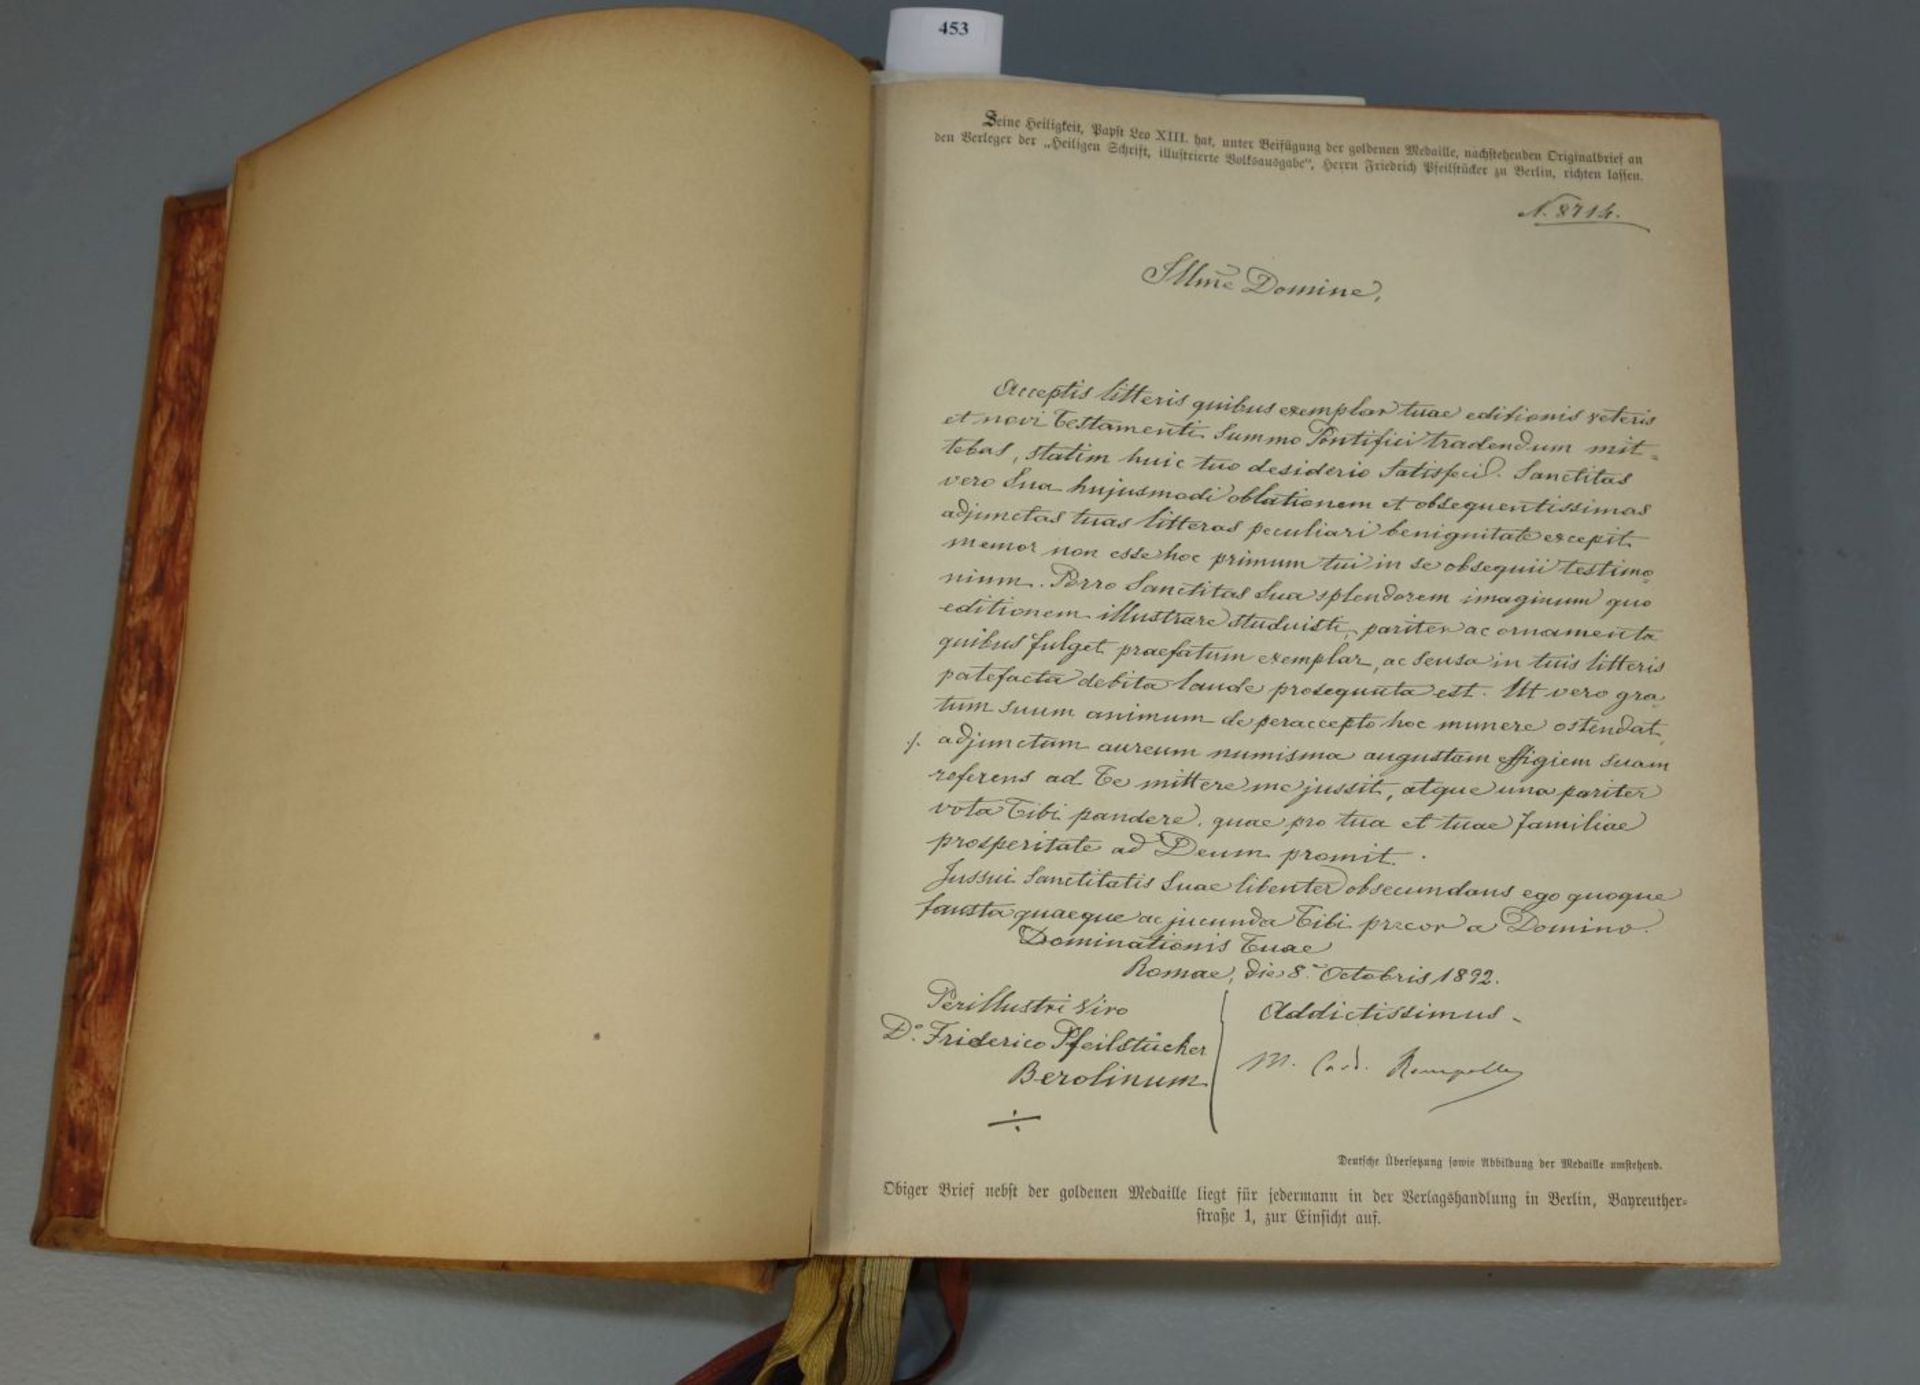 453
Seine Heiligkeit, Papst Leo XIII. hat, unter Beifügung der goldenen Medaille, nachstehenden Originalbrief an
den Verleger der „Heiligen Schrift, illustrierte Volksausgabe“, Herrn Friedrich Pfeilstücker zu Berlin, richten lassen.
N. 8714.
Illm̃e Domine,
Acceptis litteris quibus exemplar tuae editionis veteris
et novi Testamenti Summo Pontifici tradendum mit=
tebas, statim huic tuo desiderio satisfeci. Sanctitas
vero Sua hujusmodi oblationem et obsequentissimas
adjunctas tuas litteras peculiari benignitate excepit
memor non esse hoc primum tui in se obsequii testimo=
nium. Porro Sanctitas Sua splendorem imaginum quo
editionem illustrare studuisti, pariter ac ornamenta
quibus fulget praefatum exemplar, ac sensa in tuis litteris
patefacta debita laude prosequuta est. Ut vero gra=
tum suum animum de peraccepto hoc munere ostendat,
/. adjunctum aureum numisma augustam effigiem suam
referens ad Te mittere me jussit, atque una pariter
vota Tibi pandere, quae pro tua et tuae familiae
prosperitate ad Deum promit.
Jussui Sanctitatis Suae libenter obsecundans ego quoque
fausta quaeque ac jucunda Tibi precor a Domino.
Dominationis Tuae
Romae, die 8 Octobris 1892.
Perillustri Viro
Dº. Friderico Pfeilstücker
Berolinum
Addictissimus
M. Card. Rampolla
Deutsche Übersetzung sowie Abbildung der Medaille umstehend.
Obiger Brief nebst der goldenen Medaille liegt für jedermann in der Verlagshandlung in Berlin, Bayreuther=
straße 1, zur Einsicht auf.